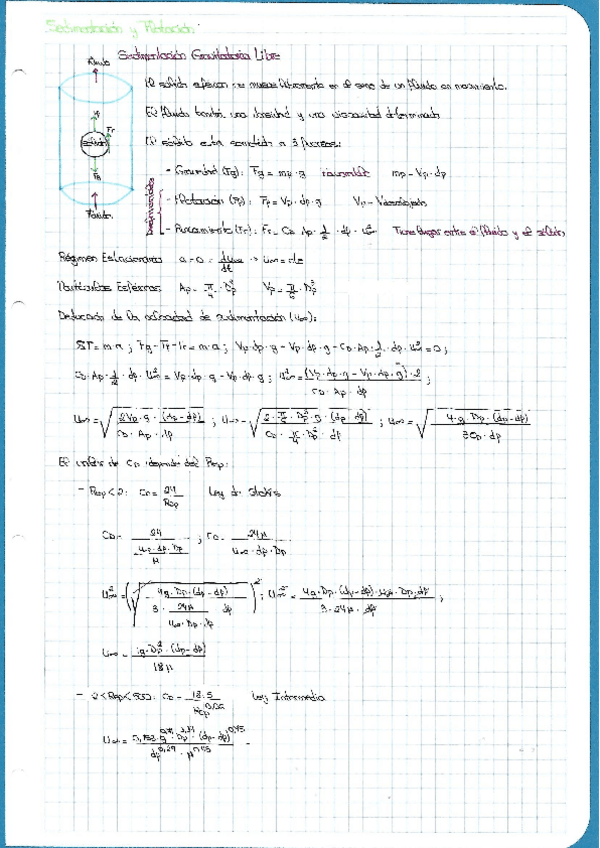 Sedimentación y Flotación
Sedimentación Gravitatoria Libre
Fluido
El sólido esférico se mueve libremente en el seno de un fluido en movimiento.
El fluido tendrá una densidad y una viscosidad determinada
El sólido está sometido a 3 fuerzas:
Fr
sólido
Fg
Fluido
- Gravedad (Fg): Fg = mp · g mp = Vp · dp
- Flotación (Ff): Ff = Vp · df · g
- Rozamiento (Fr): Fr = CD · Ap · 1/2 · df · u∞² Tiene lugar entre el fluido y el sólido
Régimen Estacionario a = 0 = du∞/dt → u∞ = cte
Partículas Esféricas: Ap = π/4 · Dp² Vp = π/6 · Dp³
Deducción de la velocidad de sedimentación (u∞):
ΣF = m·a ; Fg - Ff - Fr = m·a ; Vp · dp · g - Vp · df · g - CD · Ap · 1/2 · df · u∞² = 0 ;
CD · Ap · 1/2 · df · u∞² = Vp · dp · g - Vp · df · g ; u∞² = (Vp · dp · g - Vp · df · g) · 2 / CD · Ap · df ;
u∞ = √(2Vp · g · (dp - df) / CD · Ap · df) ; u∞ = √(2 · π/6 · Dp³ · g · (dp - df) / CD · π/4 · Dp² · df) ; u∞ = √(4 · g · Dp · (dp - df) / 3CD · df)
El valor de CD depende del Rep:
- Rep < 2: CD = 24/Rep Ley de Stokes
CD = 24 / (u∞ · df · Dp / μ) ; CD = 24μ / u∞ · df · Dp
u∞² = (√(4g · Dp · (dp - df) / 3 · 24μ / u∞ · Dp · df · df))² ; u∞² = 4g · Dp · (dp - df) · u∞ · Dp · df / 3 · 24μ · df ;
u∞ = g · Dp² · (dp - df) / 18μ
- 2 < Rep < 500: CD = 18.5 / Rep^0.6 Ley Intermedia